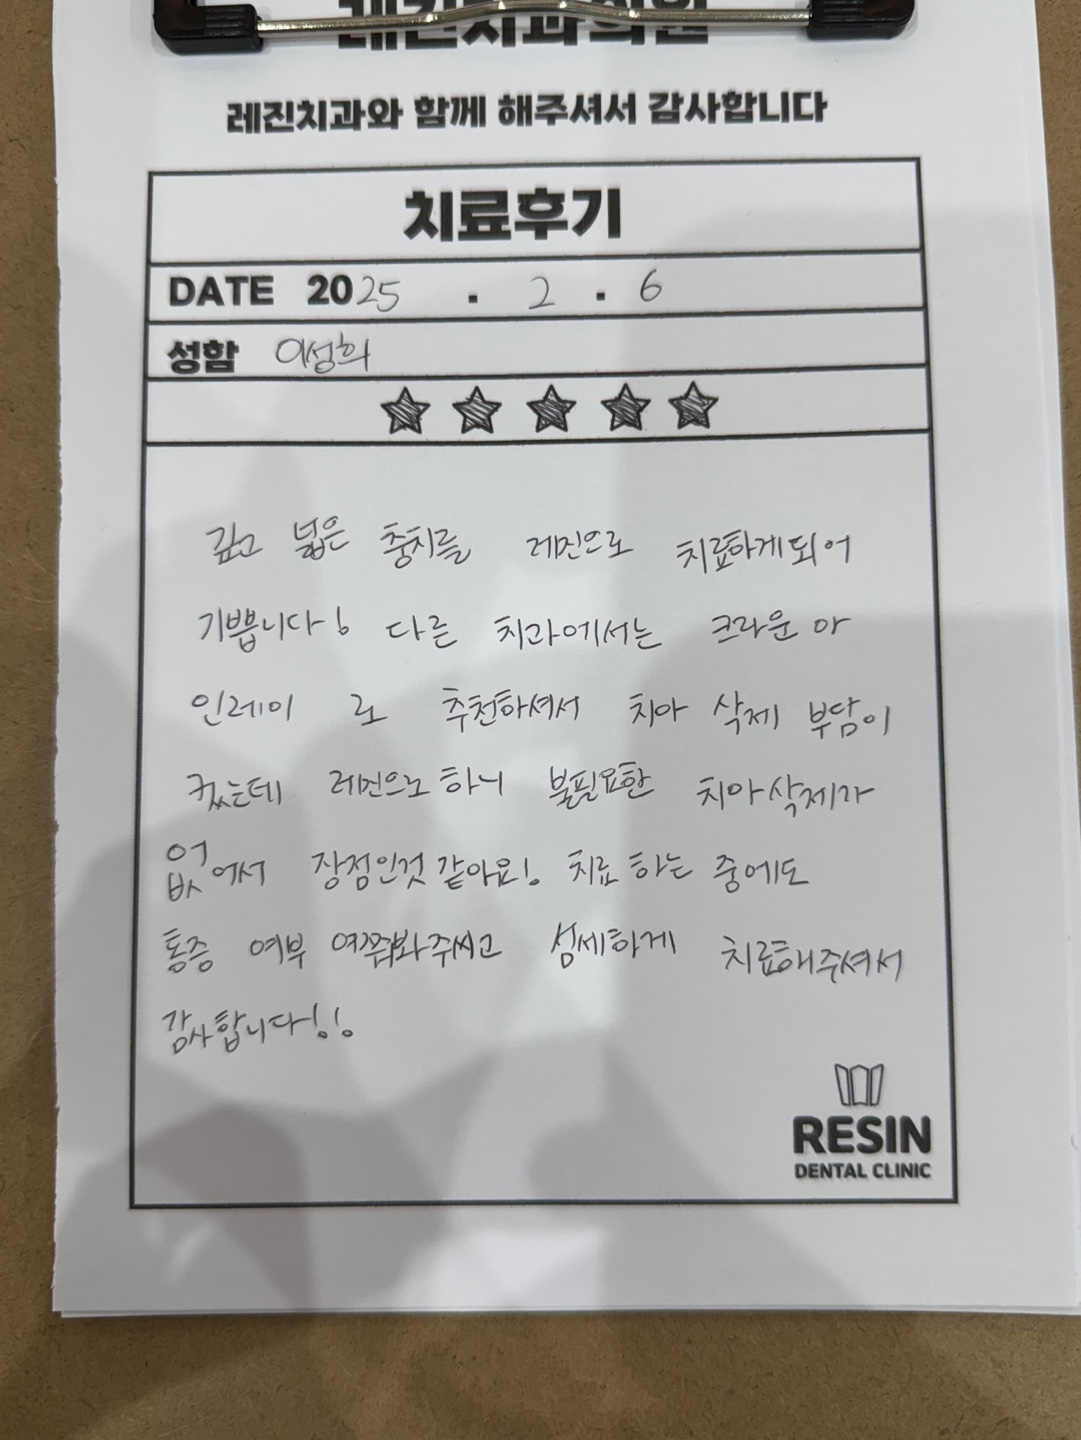 레진치과의원
레진치과와 함께 해주셔서 감사합니다
치료후기
DATE 2025 . 2 . 6
성함 이성희
깊고 넓은 충치를 레진으로 치료하게되어
기쁩니다! 다른 치과에서는 크라운 아
인레이 로 추천하셔서 치아 삭제 부담이
컸는데 레진으로 하니 불필요한 치아삭제가
없어서 장점인것 같아요! 치료 하는 중에도
통증 여부 여쭤봐주씨고 섬세하게 치료해주셔서
감사합니다!!
RESIN
DENTAL CLINIC